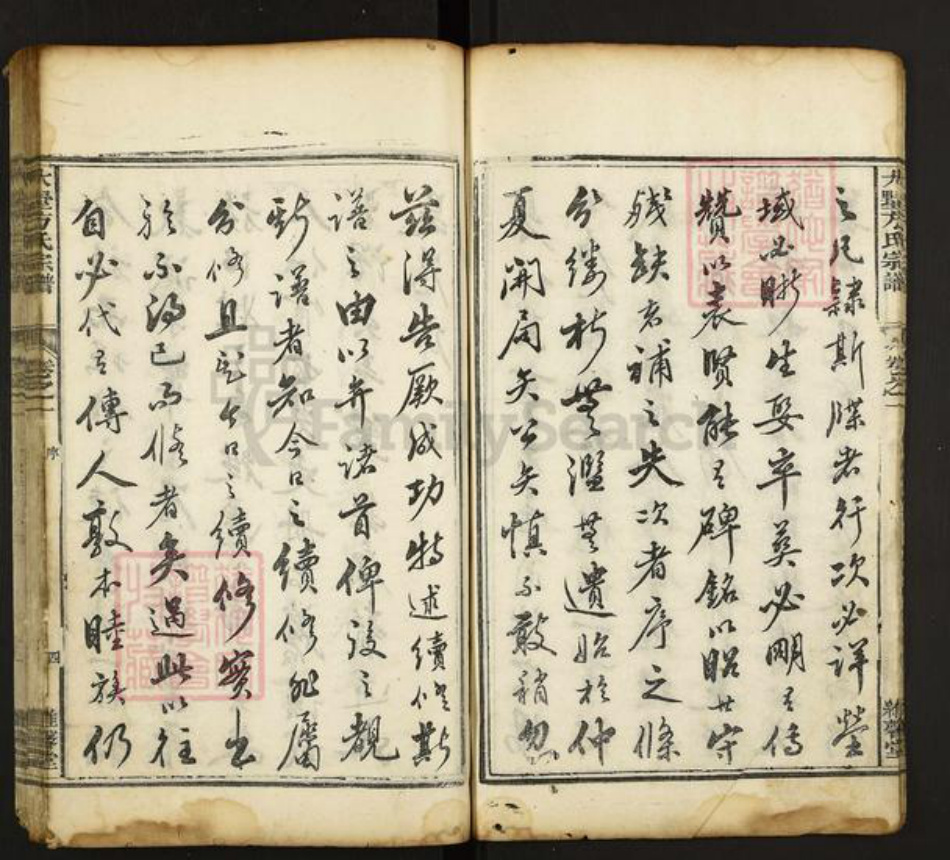 之凡隸斯牒者行次必詳塋
域必晰生娶卒葬必明有傳
贊以表賢能有碑銘以昭世守
殘缺者補之失次者序之條
分縷析無濫無遺始於仲
夏開局矢公矢慎不敢稍忽
茲得告厥成功特述續修斯
譜之由以弁諸首俾後之觀
斯譜者知今日之續修非屬
分修且知今日之續修實出
於不得已而修者矣過此以往
自必代有傳人敦本睦族仍
方氏宗譜
卷之一
序
四
FamilySearch